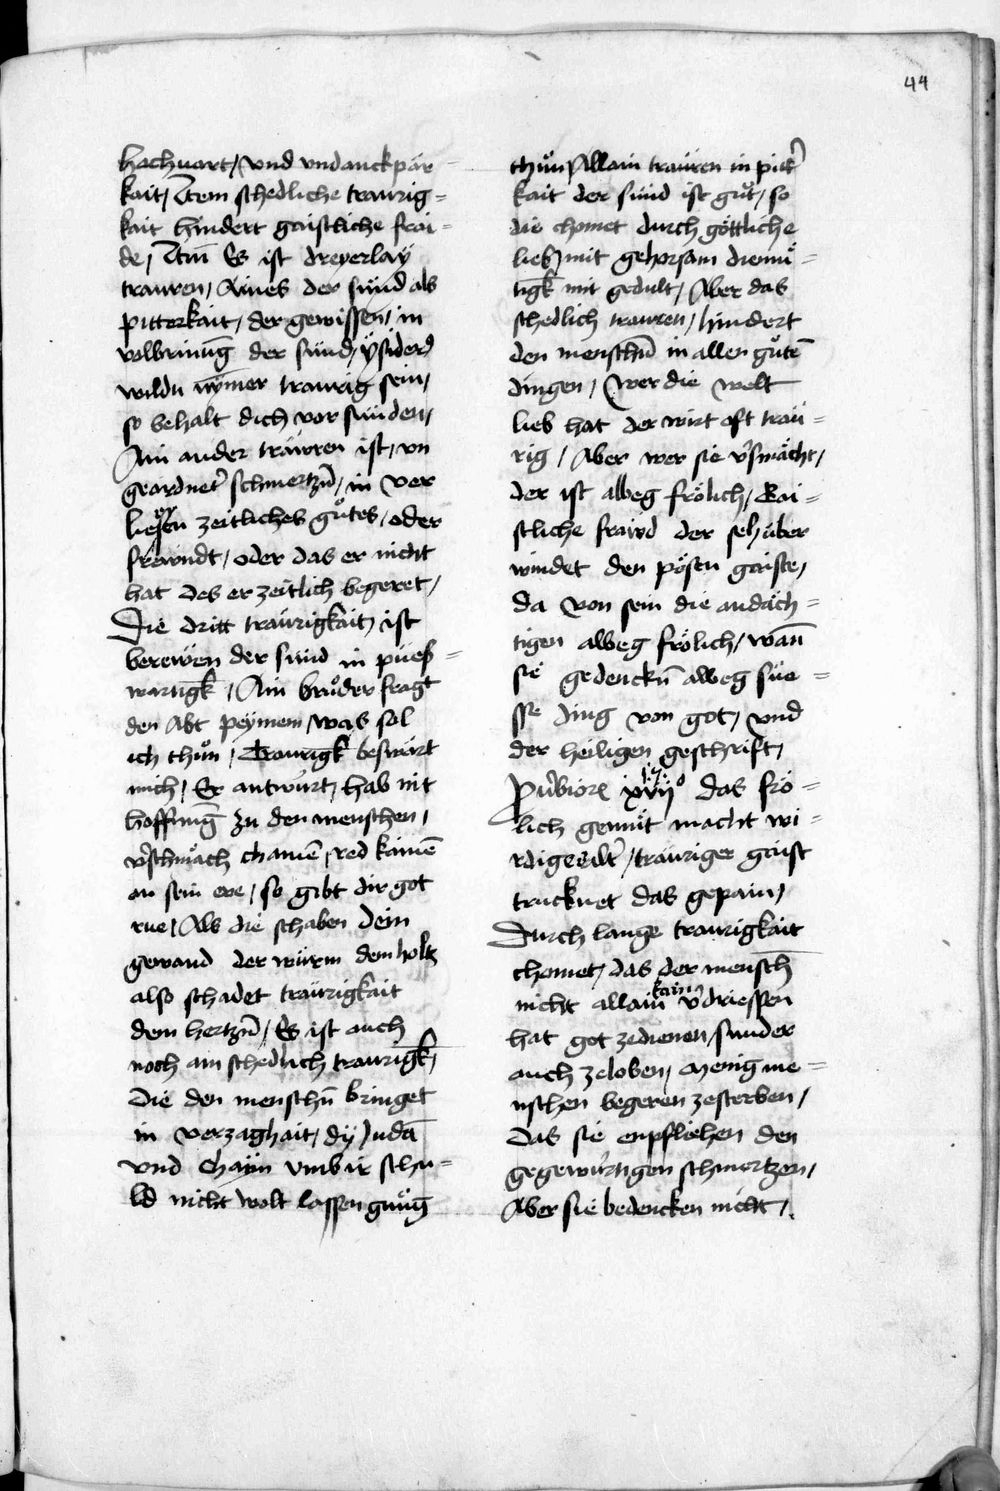 44
hochuart / vnd vndanckpär
kait / Item schedliche traurig=
kait hindert gaistliche fräi=
de / Item Es ist dreyerlaÿ
trauren / Aines der sünd als
pitterkait / der gewissen / in
volbringūg der sünd / ÿsiderꝰ
wildu nÿmer traurig sein /
so behalt dich vor sünden /
Ain ander träwren ist / vn
geardnet̉ schmertzn̄ / in ver
liesen zeitliches gůtes / oder
frewndt / oder das er nicht
hat des er zeitlich begeret /
Die dritt träurigkait / ist
berewen der sünd in pues=
wartigk̄ / Ain brůder fragt
den Abt peÿmem / was sol
ich thůn / Traurigk̄ beswärt
mich / Er antwurt / hab nit
hoffnūg zu den menschen /
v̉schmäch chainē / red kainē
an sein ere / so gibt dir got
rue / Als die schaben dem
gewand der würm dem holtz
also schadet träurigkait
dem hertzn̄ / Es ist auch
noch ain schedlich traurigk̄ /
die den menschn̄ bringet
in verzaghait / dÿ Judā
vnd chaÿin vmb ir schu=
ld nicht wolt lassen gnůg
thůn / Allain trauren in pitt̉
kait der sünd ist gůt / so
die chomet durch göttliche
lieb / mit gehorsam diemů=
tigk̄ mit gedult / Aber das
schedlich trauren / hindert
den menschn̄ in allen gůtē
dingen / Wer die welt
lieb hat der wirt oft träu=
rig / Aber wer sie v̉smächt /
der ist albeg frölich / Gai=
stliche fraẅd der sel / über
windet den pösen gaiste /
da von sein die andäch=
tigen albeg frölich / wan̄
sie gedenckn̄ albeg süe=
sse ding von got / vnd
der heiligen geschrift /
.17.
xvijͦ das frö=
lich gemüt macht wi=
rdiges alter / träuriger gaist
trucknet das gepain /
Durch lange traurigkait
chomet / das der mensch
kain
nicht allain v̉driessen
hat got zedienen / sunder
auch zeloben / Menig me=
nschen begeren zesterben /
das sie enpfliehen den
gegewürtigen schmertzen /
Aber sie bedencken nicht /